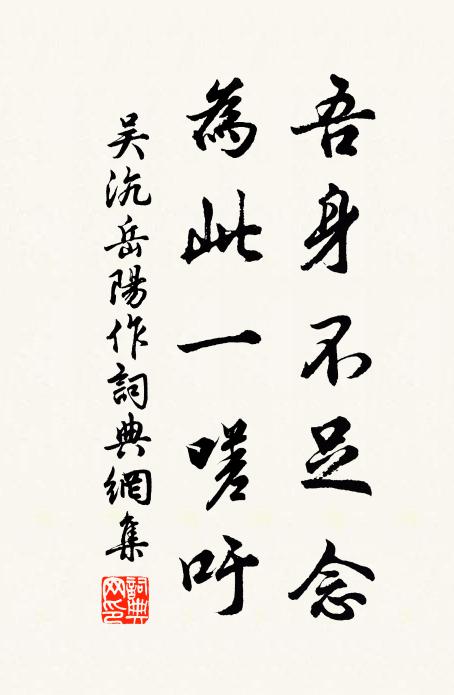 吾身不足念
為此一嗟吁
吳沆岳陽作詞典網集
詞典
网印